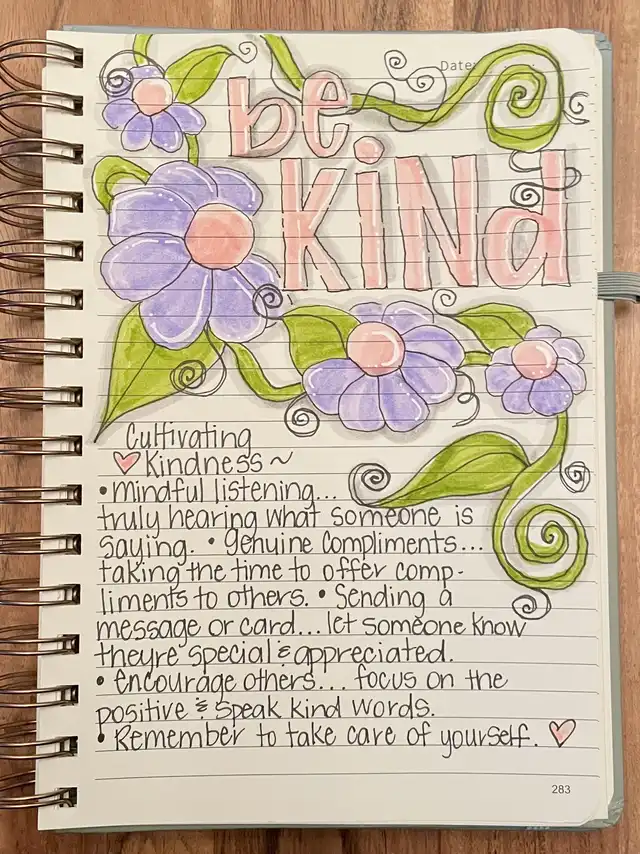 Date:
be
KiNd
Cultivating
Kindness ~
• Mindful listening...
truly hearing what someone is
saying. • Genuine Compliments...
taking the time to offer comp-
liments to others. • Sending a
message or card... let someone know
theyre special & appreciated.
• encourage others... focus on the
positive & speak kind words.
• Remember to take care of yourself.
283